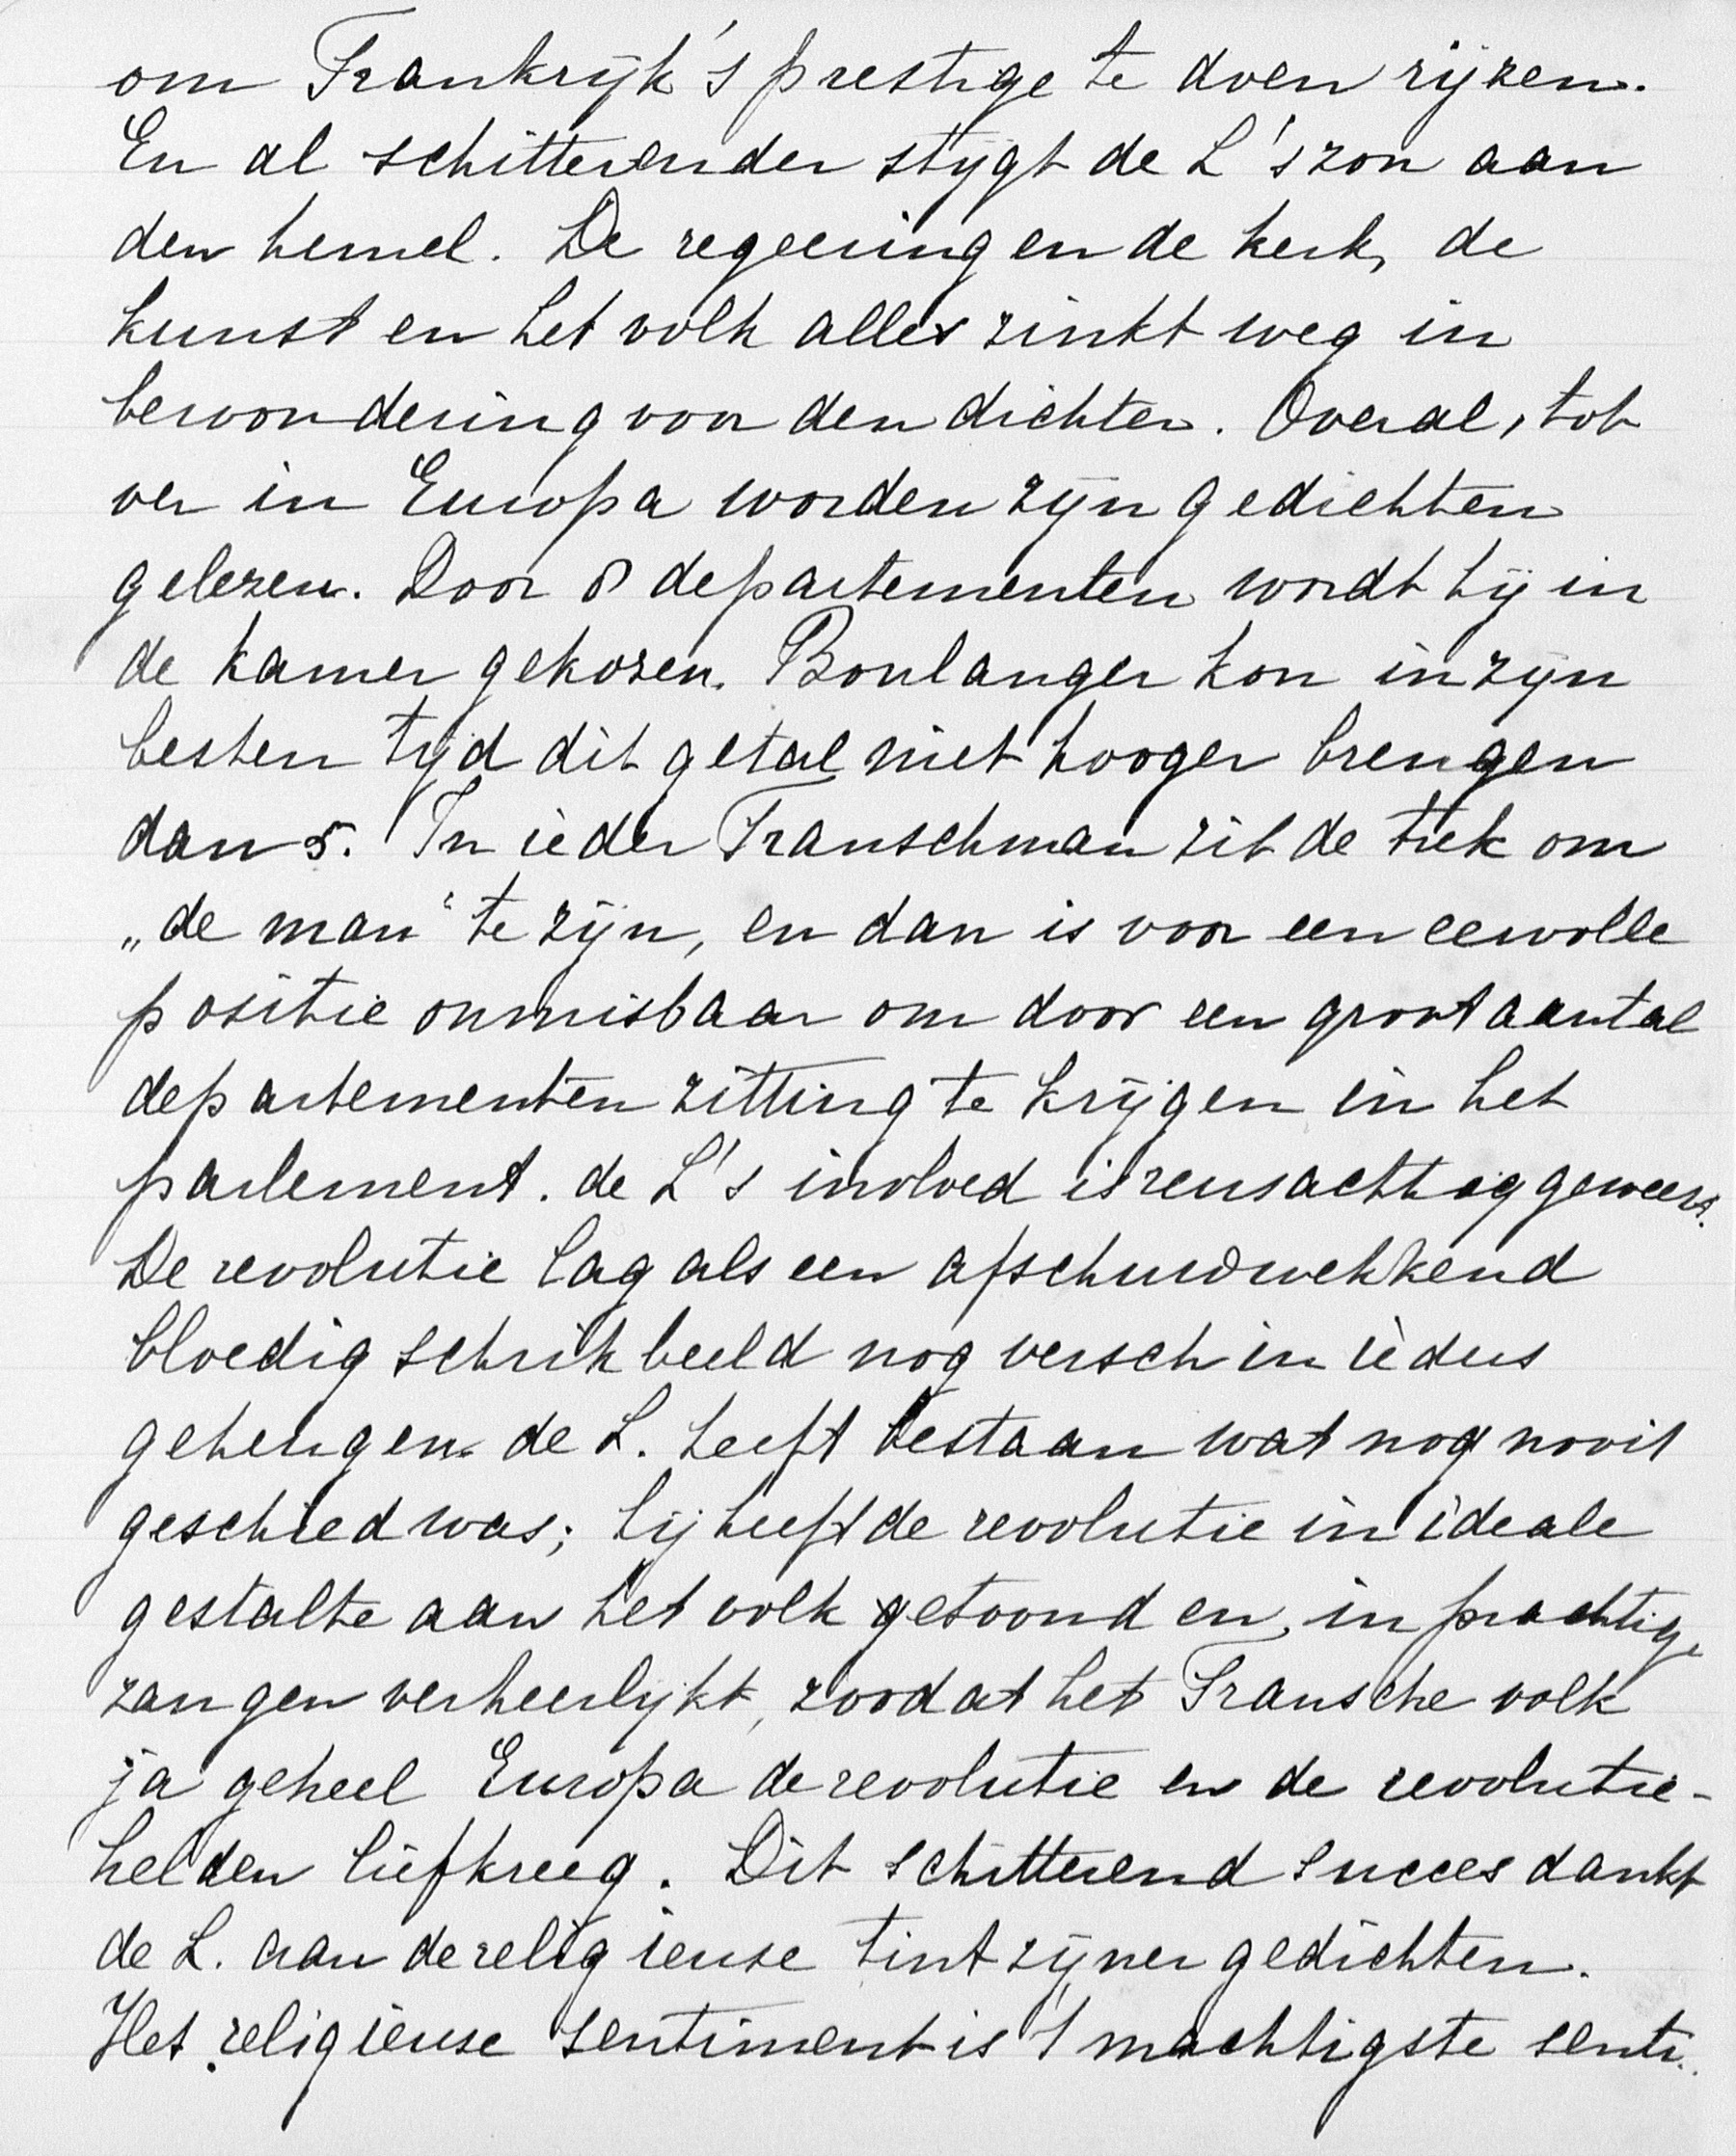 om Frankrijk's prestige te doen rijzen.
En al schitterender stijgt de L's zon aan
den hemel. De regeering en de kerk, de
kunst en het volk alles zinkt weg in
bewondering voor den dichter. Overal, tot
ver in Europa worden zijn gedichten
gelezen. Door 8 departementen wordt hij in
de kamer gekozen. Boulanger kon in zijn
besten tijd dit getal niet hooger brengen
dan 5. In ieder Franschman zit de trek om
„de man“ te zijn, en dan is voor een eervolle
positie onmisbaar om door een groot aantal
departementen zitting te krijgen in het
parlement. de L's invloed is reusachtig geweest.
De revolutie lag als een afschuwwekkend
bloedig schrikbeeld nog versch in ieders
geheugen. de L. heeft bestaan wat nog nooit
geschied was; hij heeft de revolutie in ideale
gestalte aan het volk getoond en in prachtige
zangen verheerlijkt, zoodat het Fransche volk
ja geheel Europa de revolutie en de revolutie-
helden liefkreeg. Dit schitterend succes dankt
de L. aan de religieuse tint zijner gedichten.
Het religieuse sentiment is 't machtigste senti..